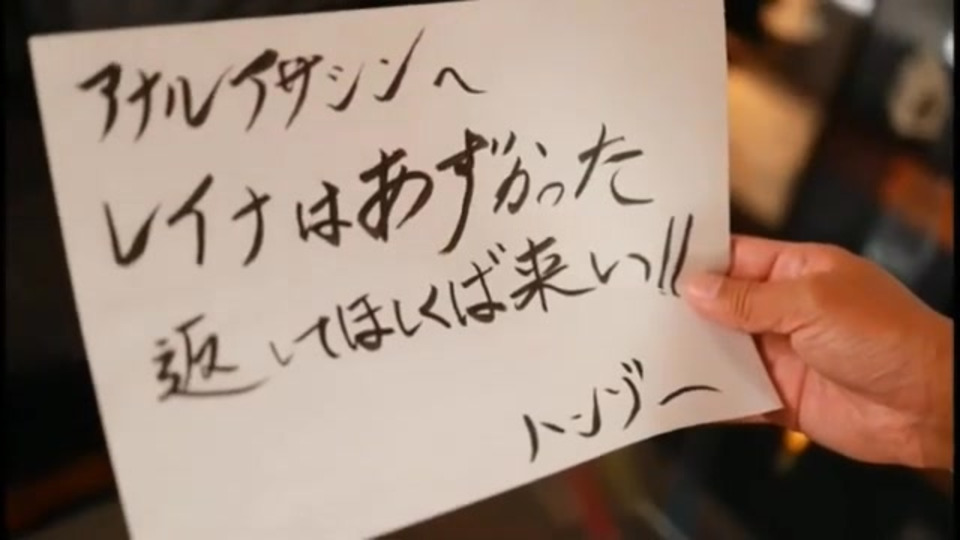 アナルイサシンへ
レイナはあずかった
返してほしくば来い!!
ハンゾー